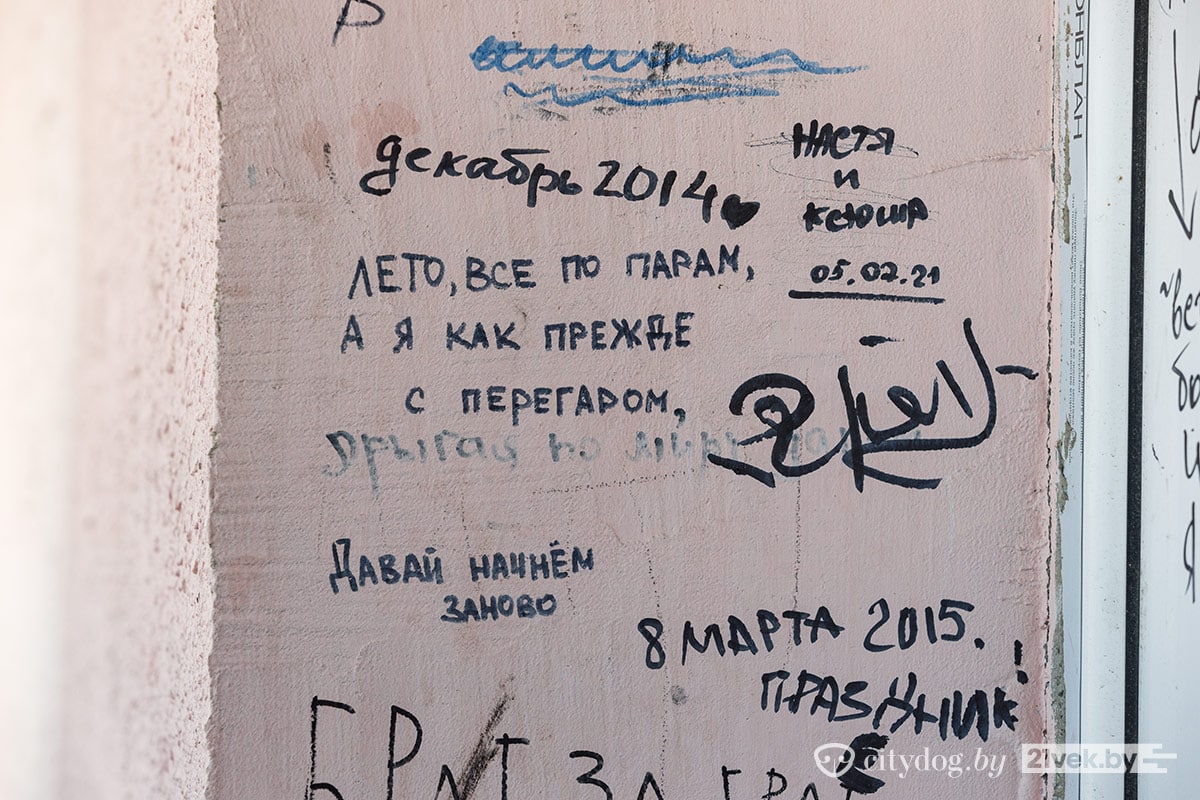 декабрь 2014
НАСТЯ
и
КСЮША
05.02.21
ЛЕТО, ВСЕ ПО ПАРАМ,
А Я КАК ПРЕЖДЕ
С ПЕРЕГАРОМ,
ДАВАЙ НАЧНЁМ
ЗАНОВО
8 МАРТА 2015.
ПРАЗНИК!
БРАТ ЗА БРАТ
citydog.by
21vek.by